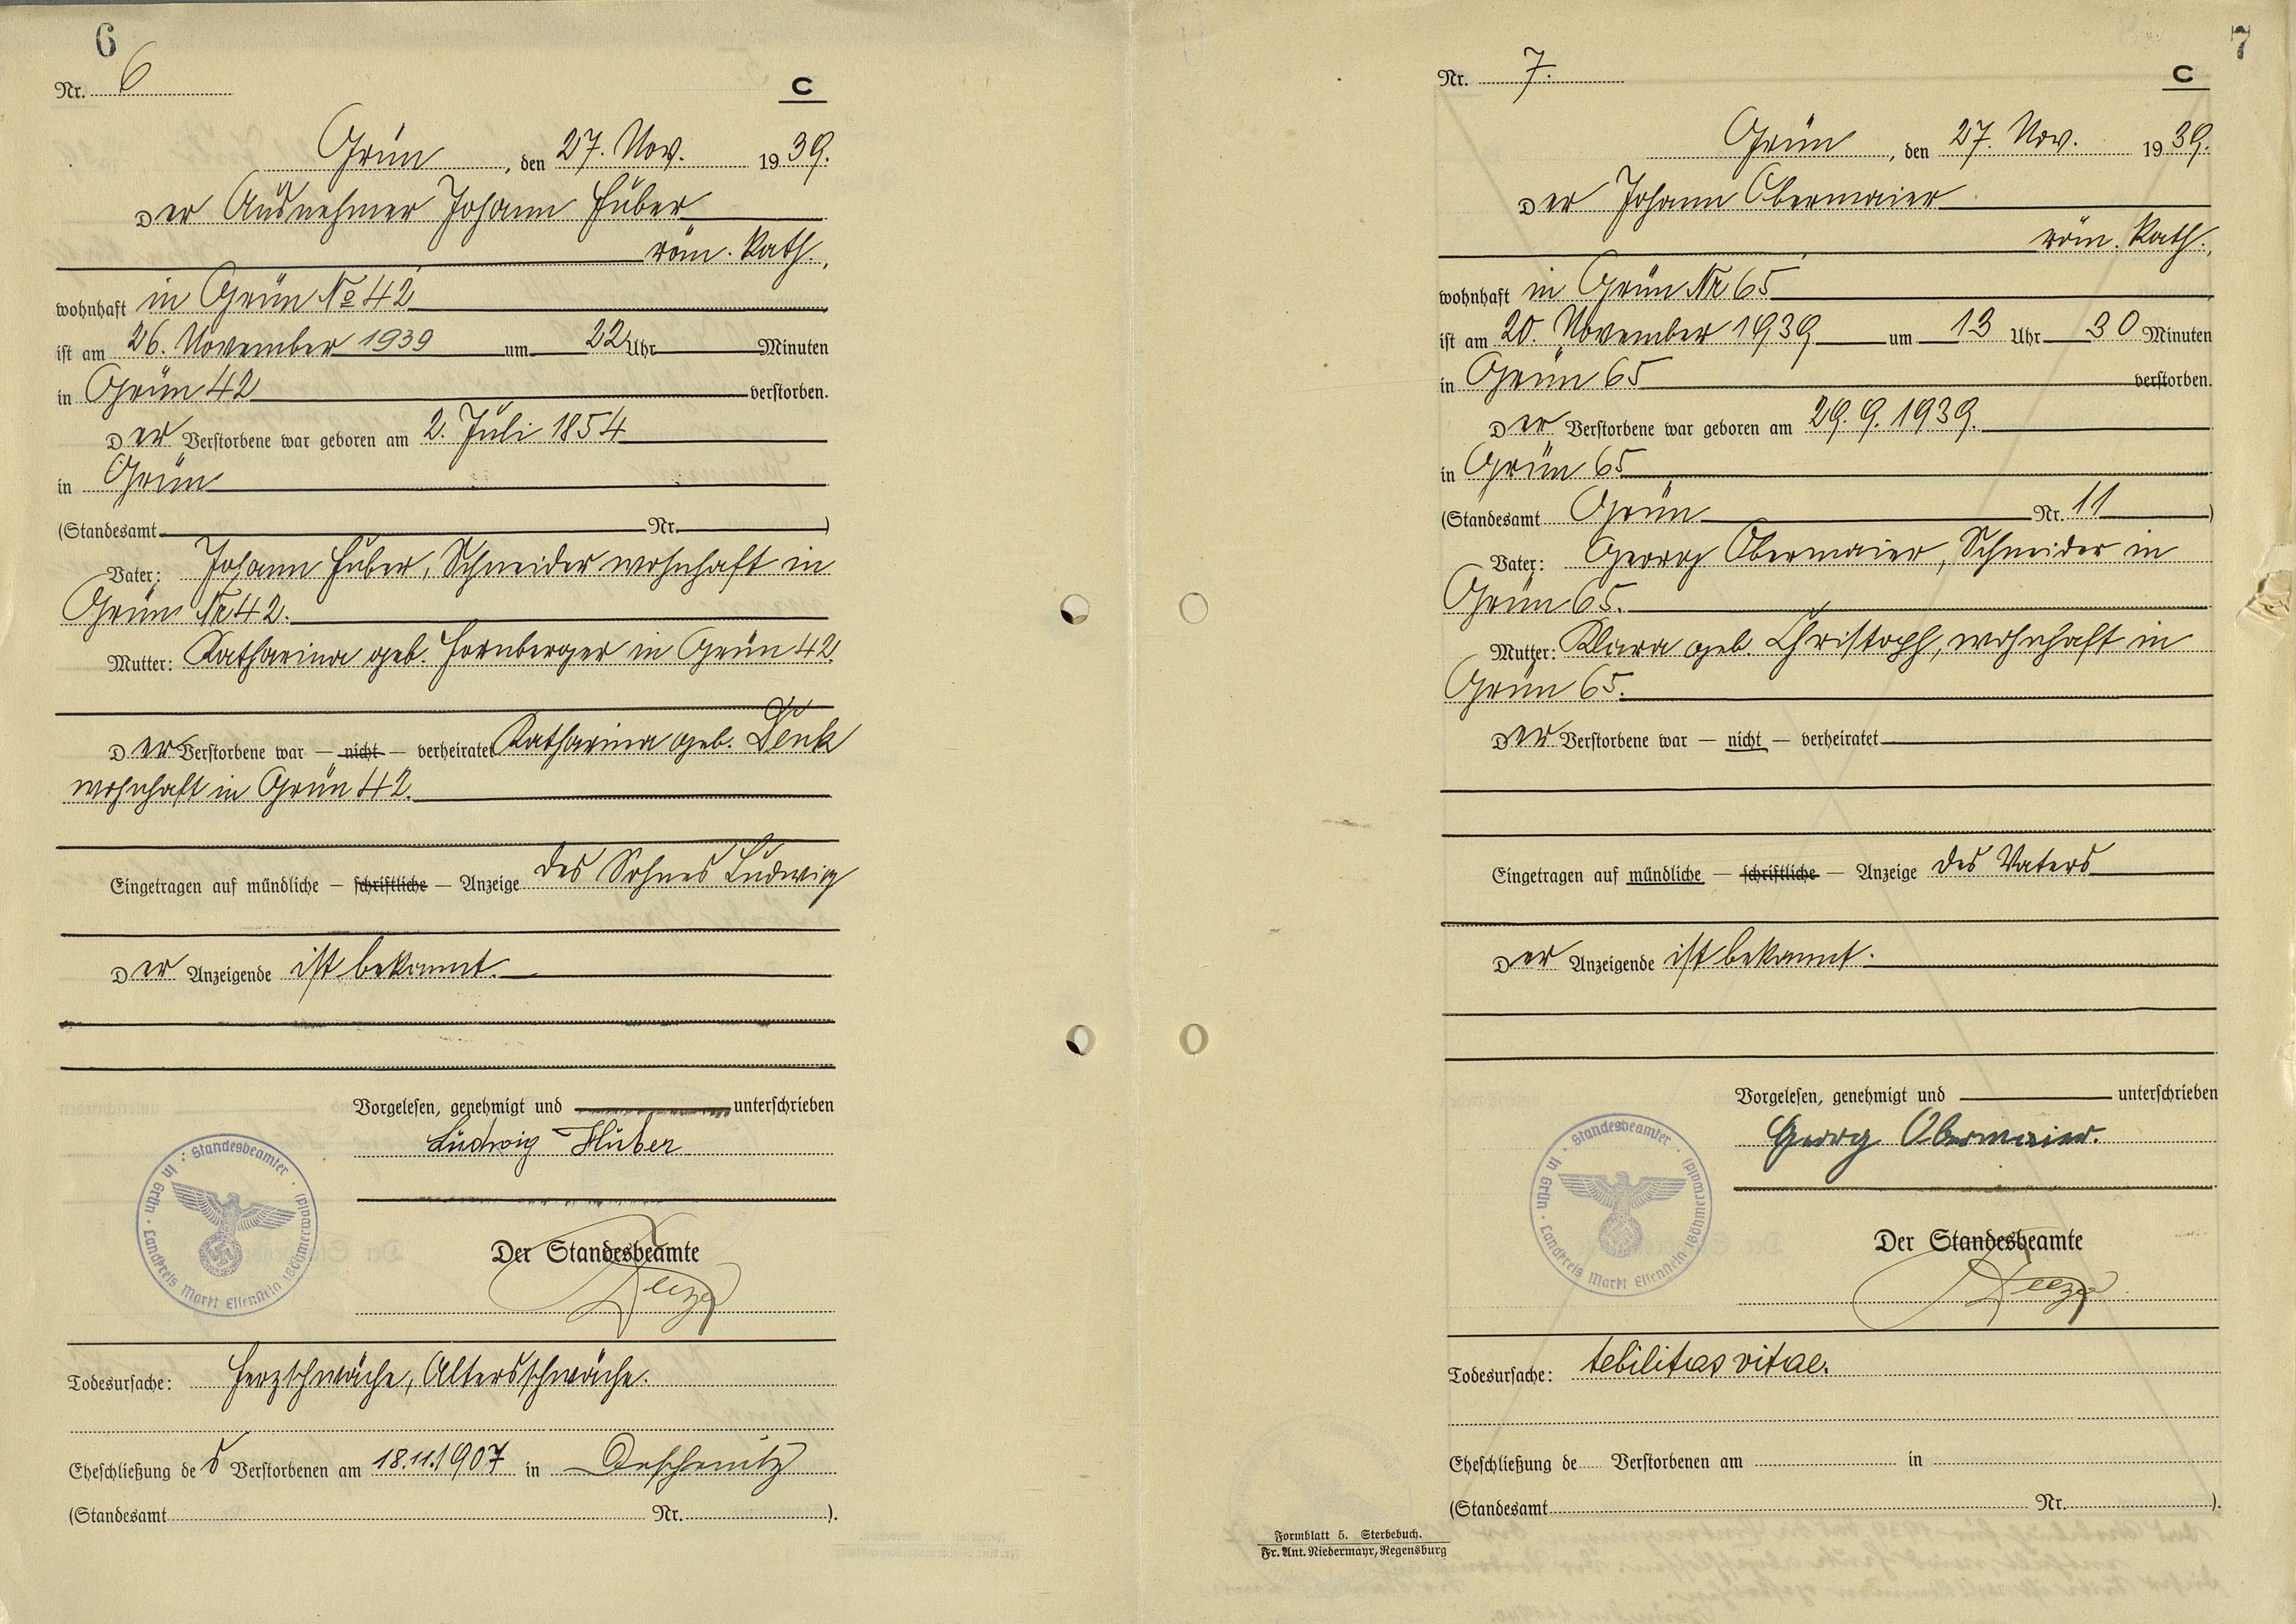 6
Nr. 6
C
Grün, den 27. Nov. 1939.
Der Ausnehmer Johann Huber
röm. kath.,
wohnhaft in Grün No 42
ist am 26. November 1939 um 22 Uhr Minuten
in Grün 42 verstorben.
Der Verstorbene war geboren am 2. Juli 1854
in Grün
(Standesamt Nr. )
Vater: Johann Huber, Schneider wohnhaft in
Grün Nr 42.
Mutter: Katharina geb. Hornberger in Grün 42.
Der Verstorbene war — nicht — verheiratet Katharina geb. Denk
wohnhaft in Grün 42.
Eingetragen auf mündliche — schriftliche — Anzeige des Sohnes Ludwig
Der Anzeigende ist bekannt.
Vorgelesen, genehmigt und unterschrieben
Ludwig Huber
Standesbeamter · in Grün · Landkreis Markt Eisenstein (Böhmerwald)
Der Standesbeamte
Todesursache: Herzschwäche, Altersschwäche.
Eheschließung des Verstorbenen am 18.11.1907 in Deschenitz
(Standesamt Nr. ).
7
Nr. 7.
C
Grün, den 27. Nov. 1939.
Der Johann Obermaier
röm. kath.,
wohnhaft in Grün Nr 65
ist am 20. November 1939 um 13 Uhr 30 Minuten
in Grün 65 verstorben.
Der Verstorbene war geboren am 29. 9. 1939.
in Grün 65
(Standesamt Grün Nr. 11 )
Vater: Georg Obermaier, Schneider in
Grün 65.
Mutter: Klara geb. Christoph, wohnhaft in
Grün 65.
Der Verstorbene war — nicht — verheiratet
Eingetragen auf mündliche — schriftliche — Anzeige des Vaters
Der Anzeigende ist bekannt.
Vorgelesen, genehmigt und unterschrieben
Georg Obermaier.
Standesbeamter · in Grün · Landkreis Markt Eisenstein (Böhmerwald)
Der Standesbeamte
Todesursache: tebilitas vitae.
Eheschließung de Verstorbenen am in
(Standesamt Nr. ).
Formblatt 5. Sterbebuch.
Fr. Ant. Niedermayr, Regensburg